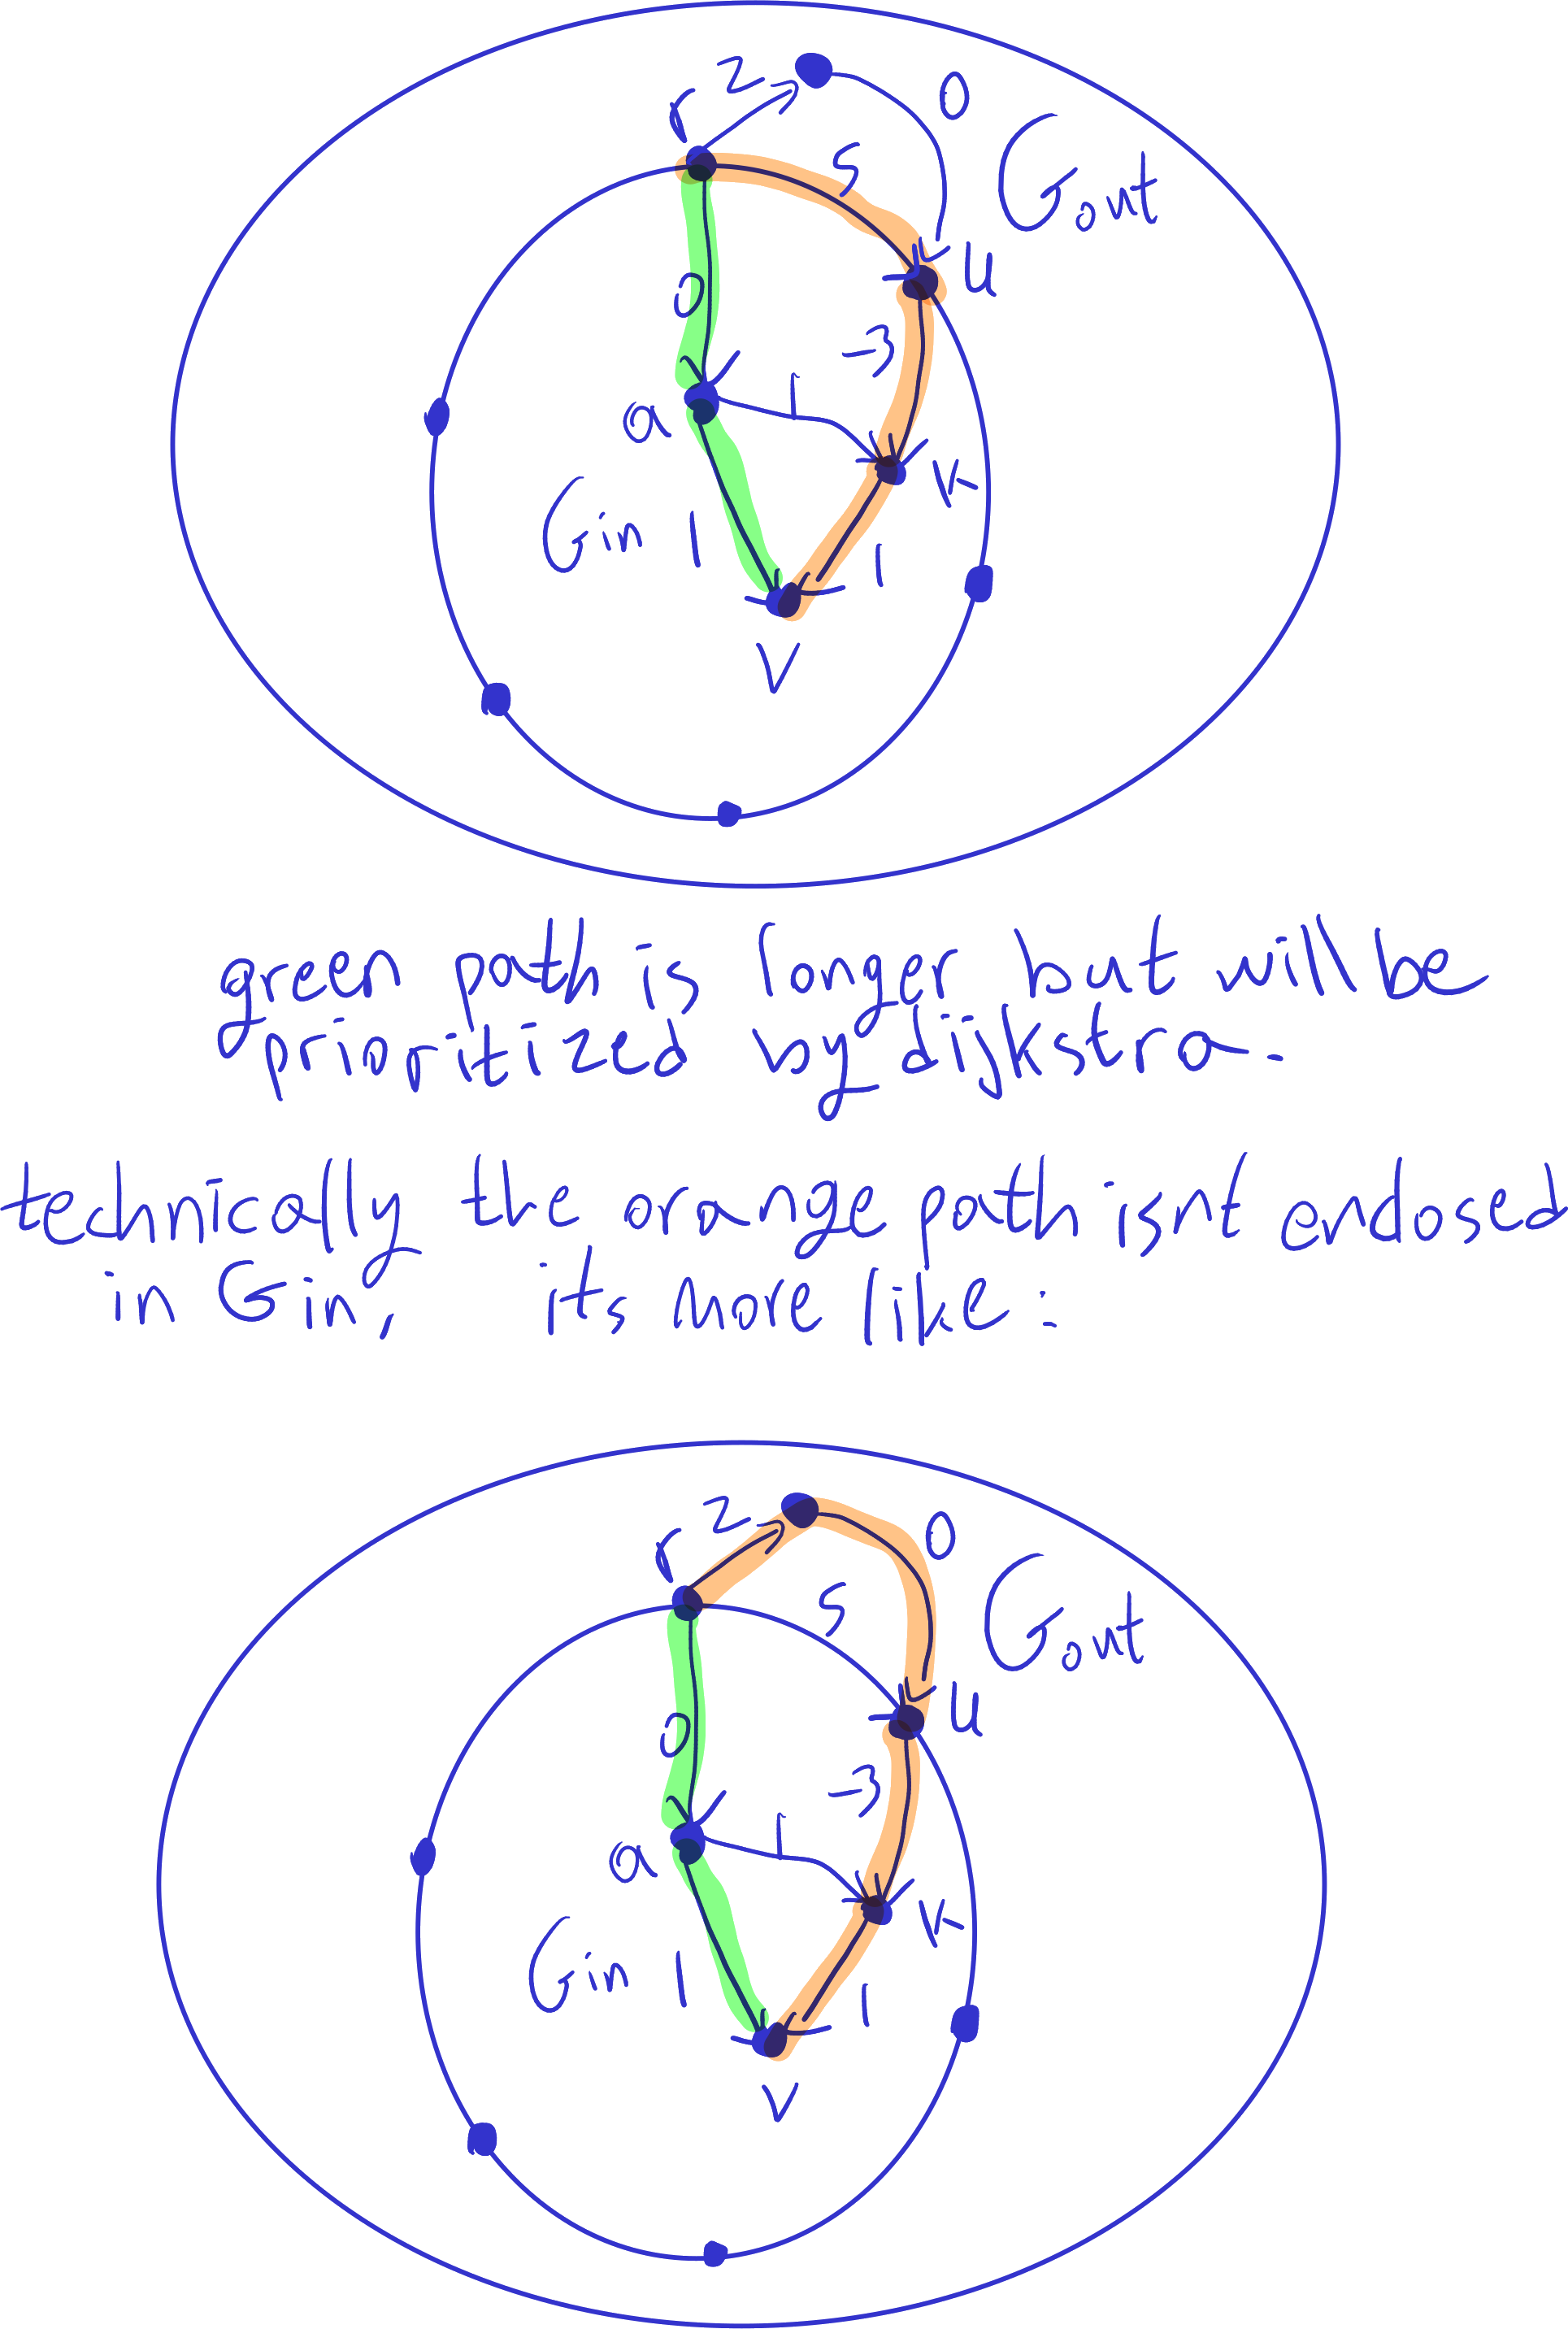 r 2 0
5 Gout
u
0 -3
1
a k
Gin 1 1
v
green path is longer but will be
prioritized by dijkstra.
technically the orange path isnt enclosed
in Gin, its more like:
r 2 0
5 Gout
u
0 -3
1
a k
Gin 1 1
v